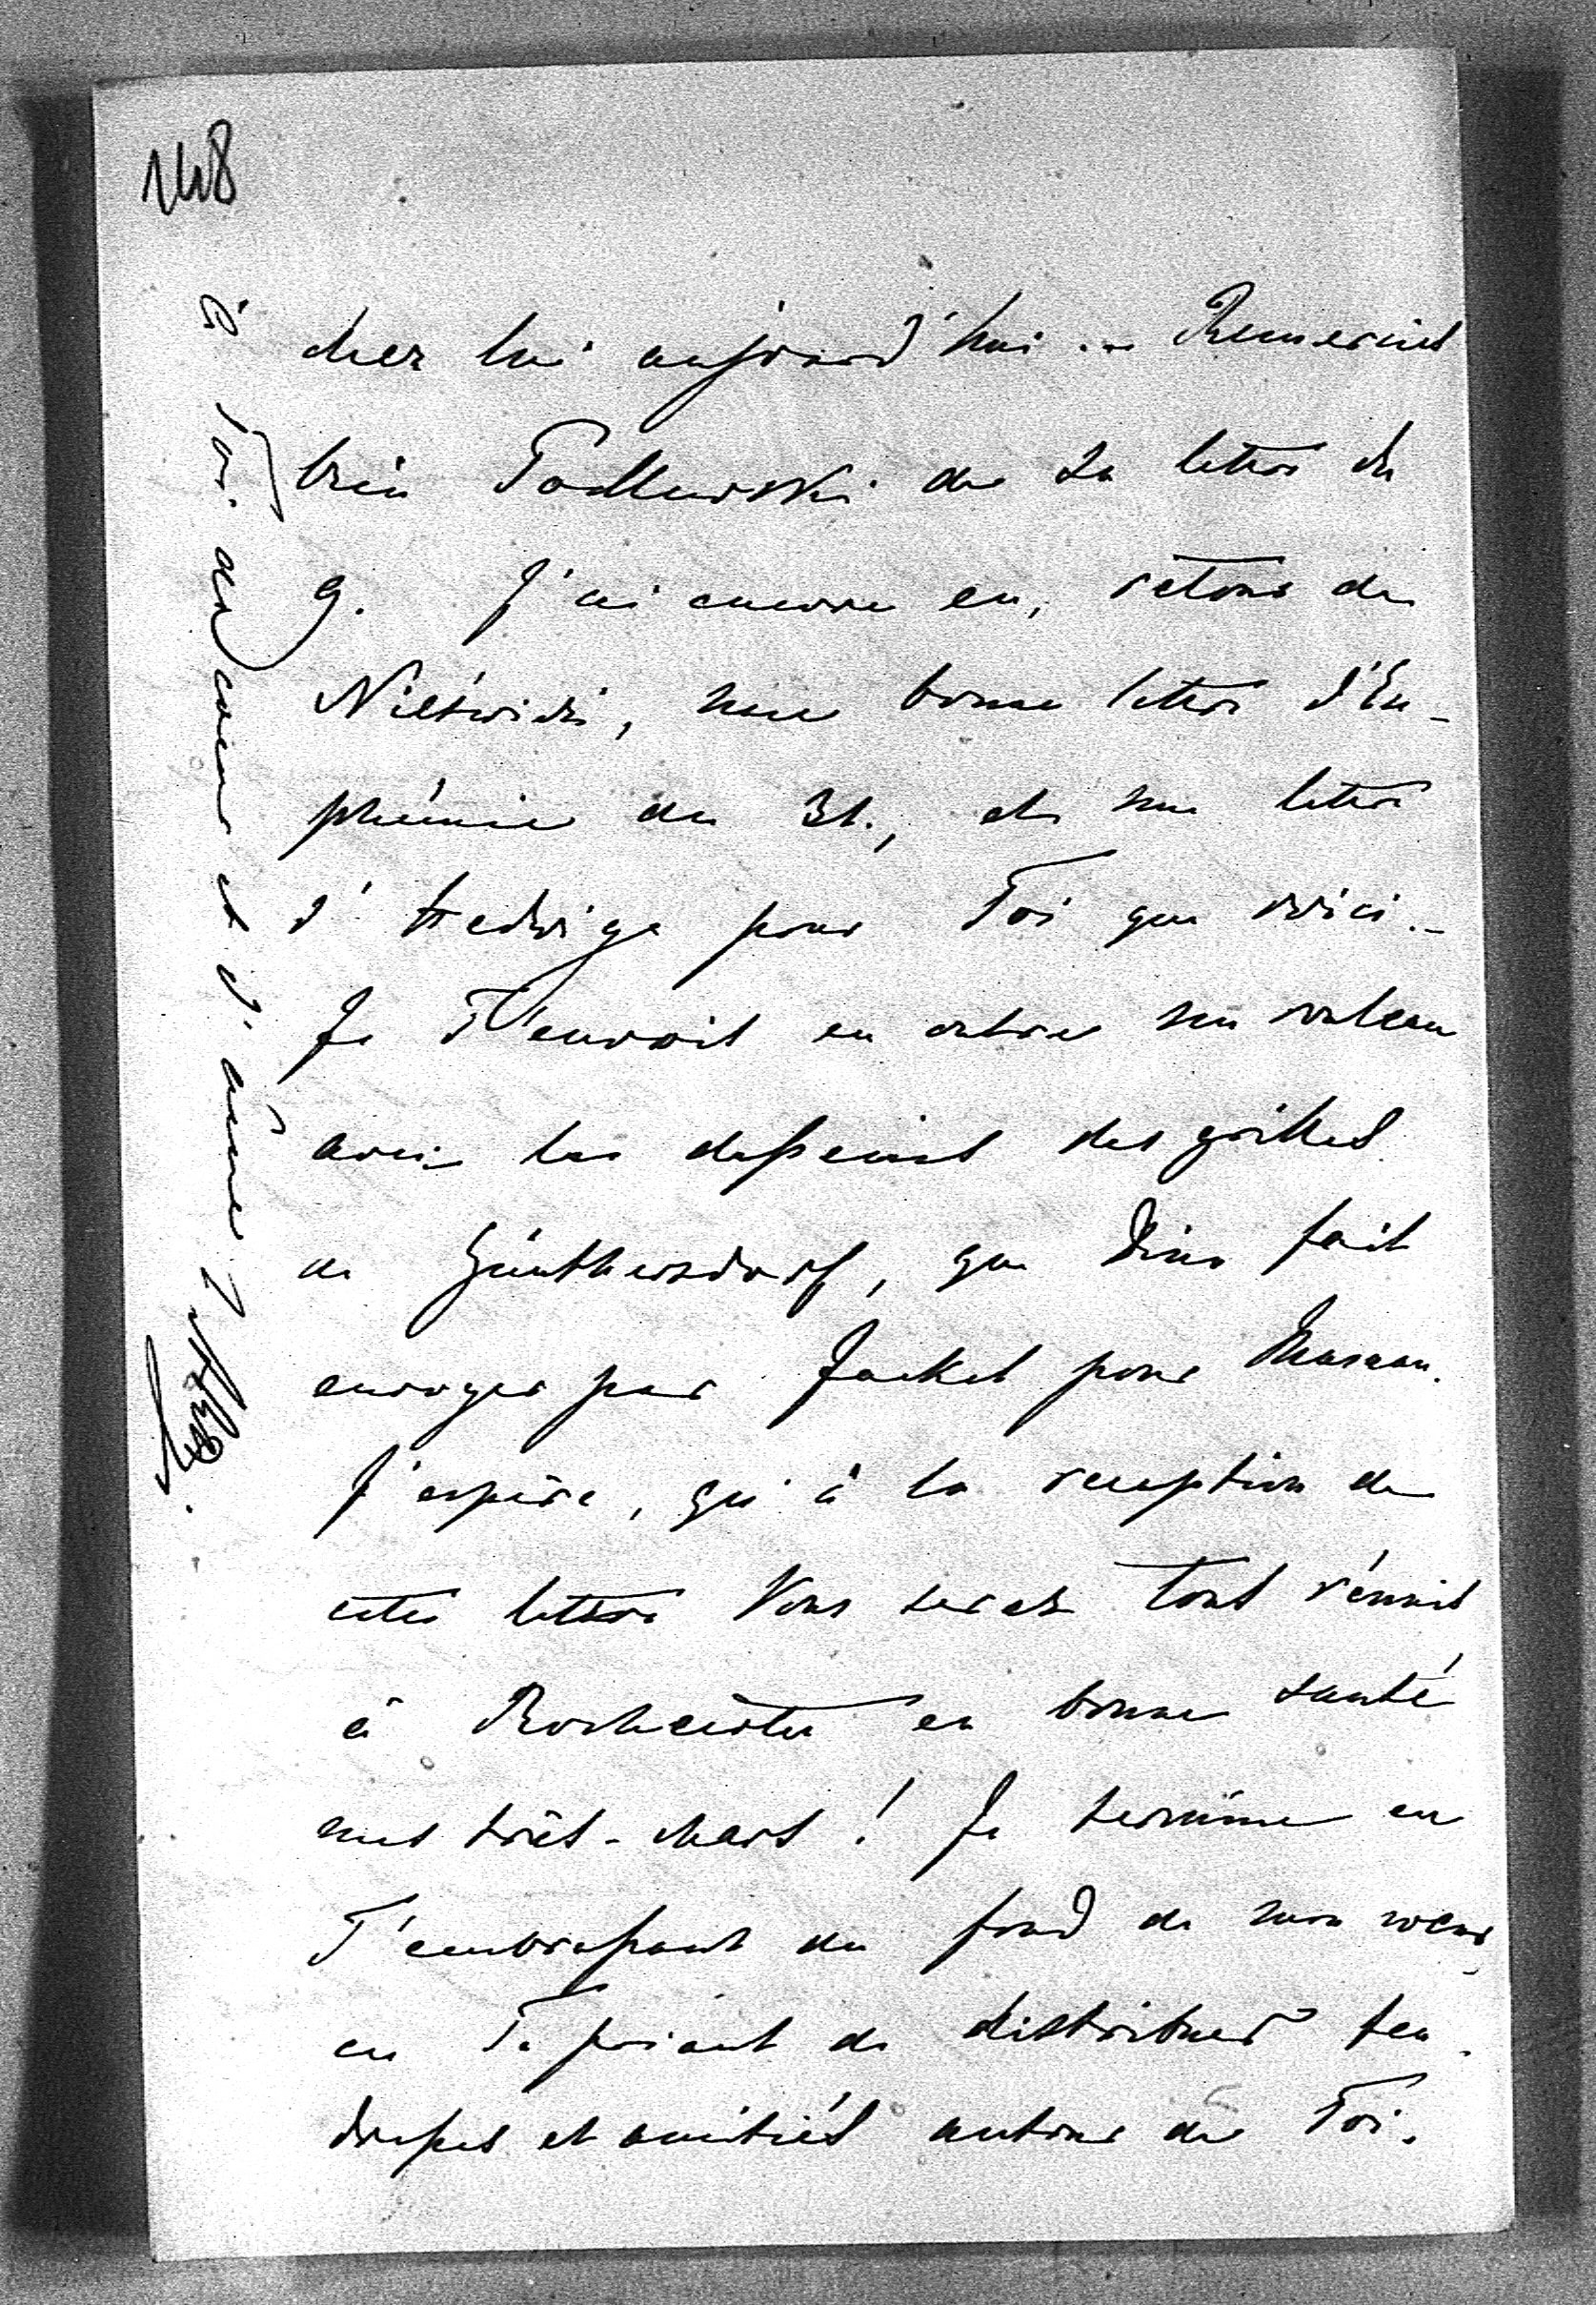 148
chez lui aujourd'hui ... Remerciez
bien Podlewski de sa lettre du
9. J'ai encore eu, retour de
Nieświdz, une bonne lettre d'Eu-
phémie du 31., et une lettre
d'Hedwige pour Toi que voici.-
Je T'envois en outre un rouleau
avec les desseins des grilles
de Günthersdorf, que Dino fait
envoyer par Jackel pour Maman.
J'espère, qu'à la reception de
cette lettre Vous serez tous réunis
à en bonne santé
mes très-chers! Je termine en
T'embrassant du fond de mon coeur
en Te priant de distribuer ten-
dresses et amitiés autour de Toi.
à Toi de coeur et d'âme